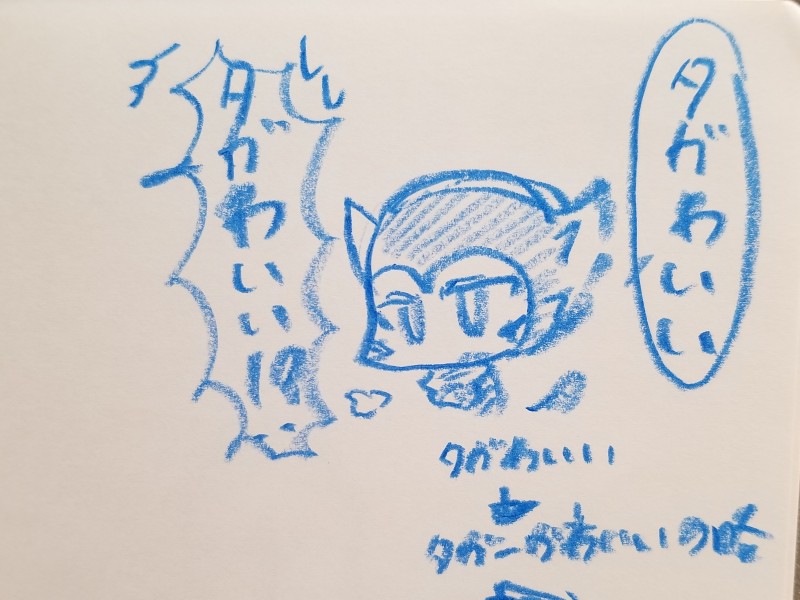 タがわいい
タがわいい!?
タがわいい
↓
タガーかわいいの略